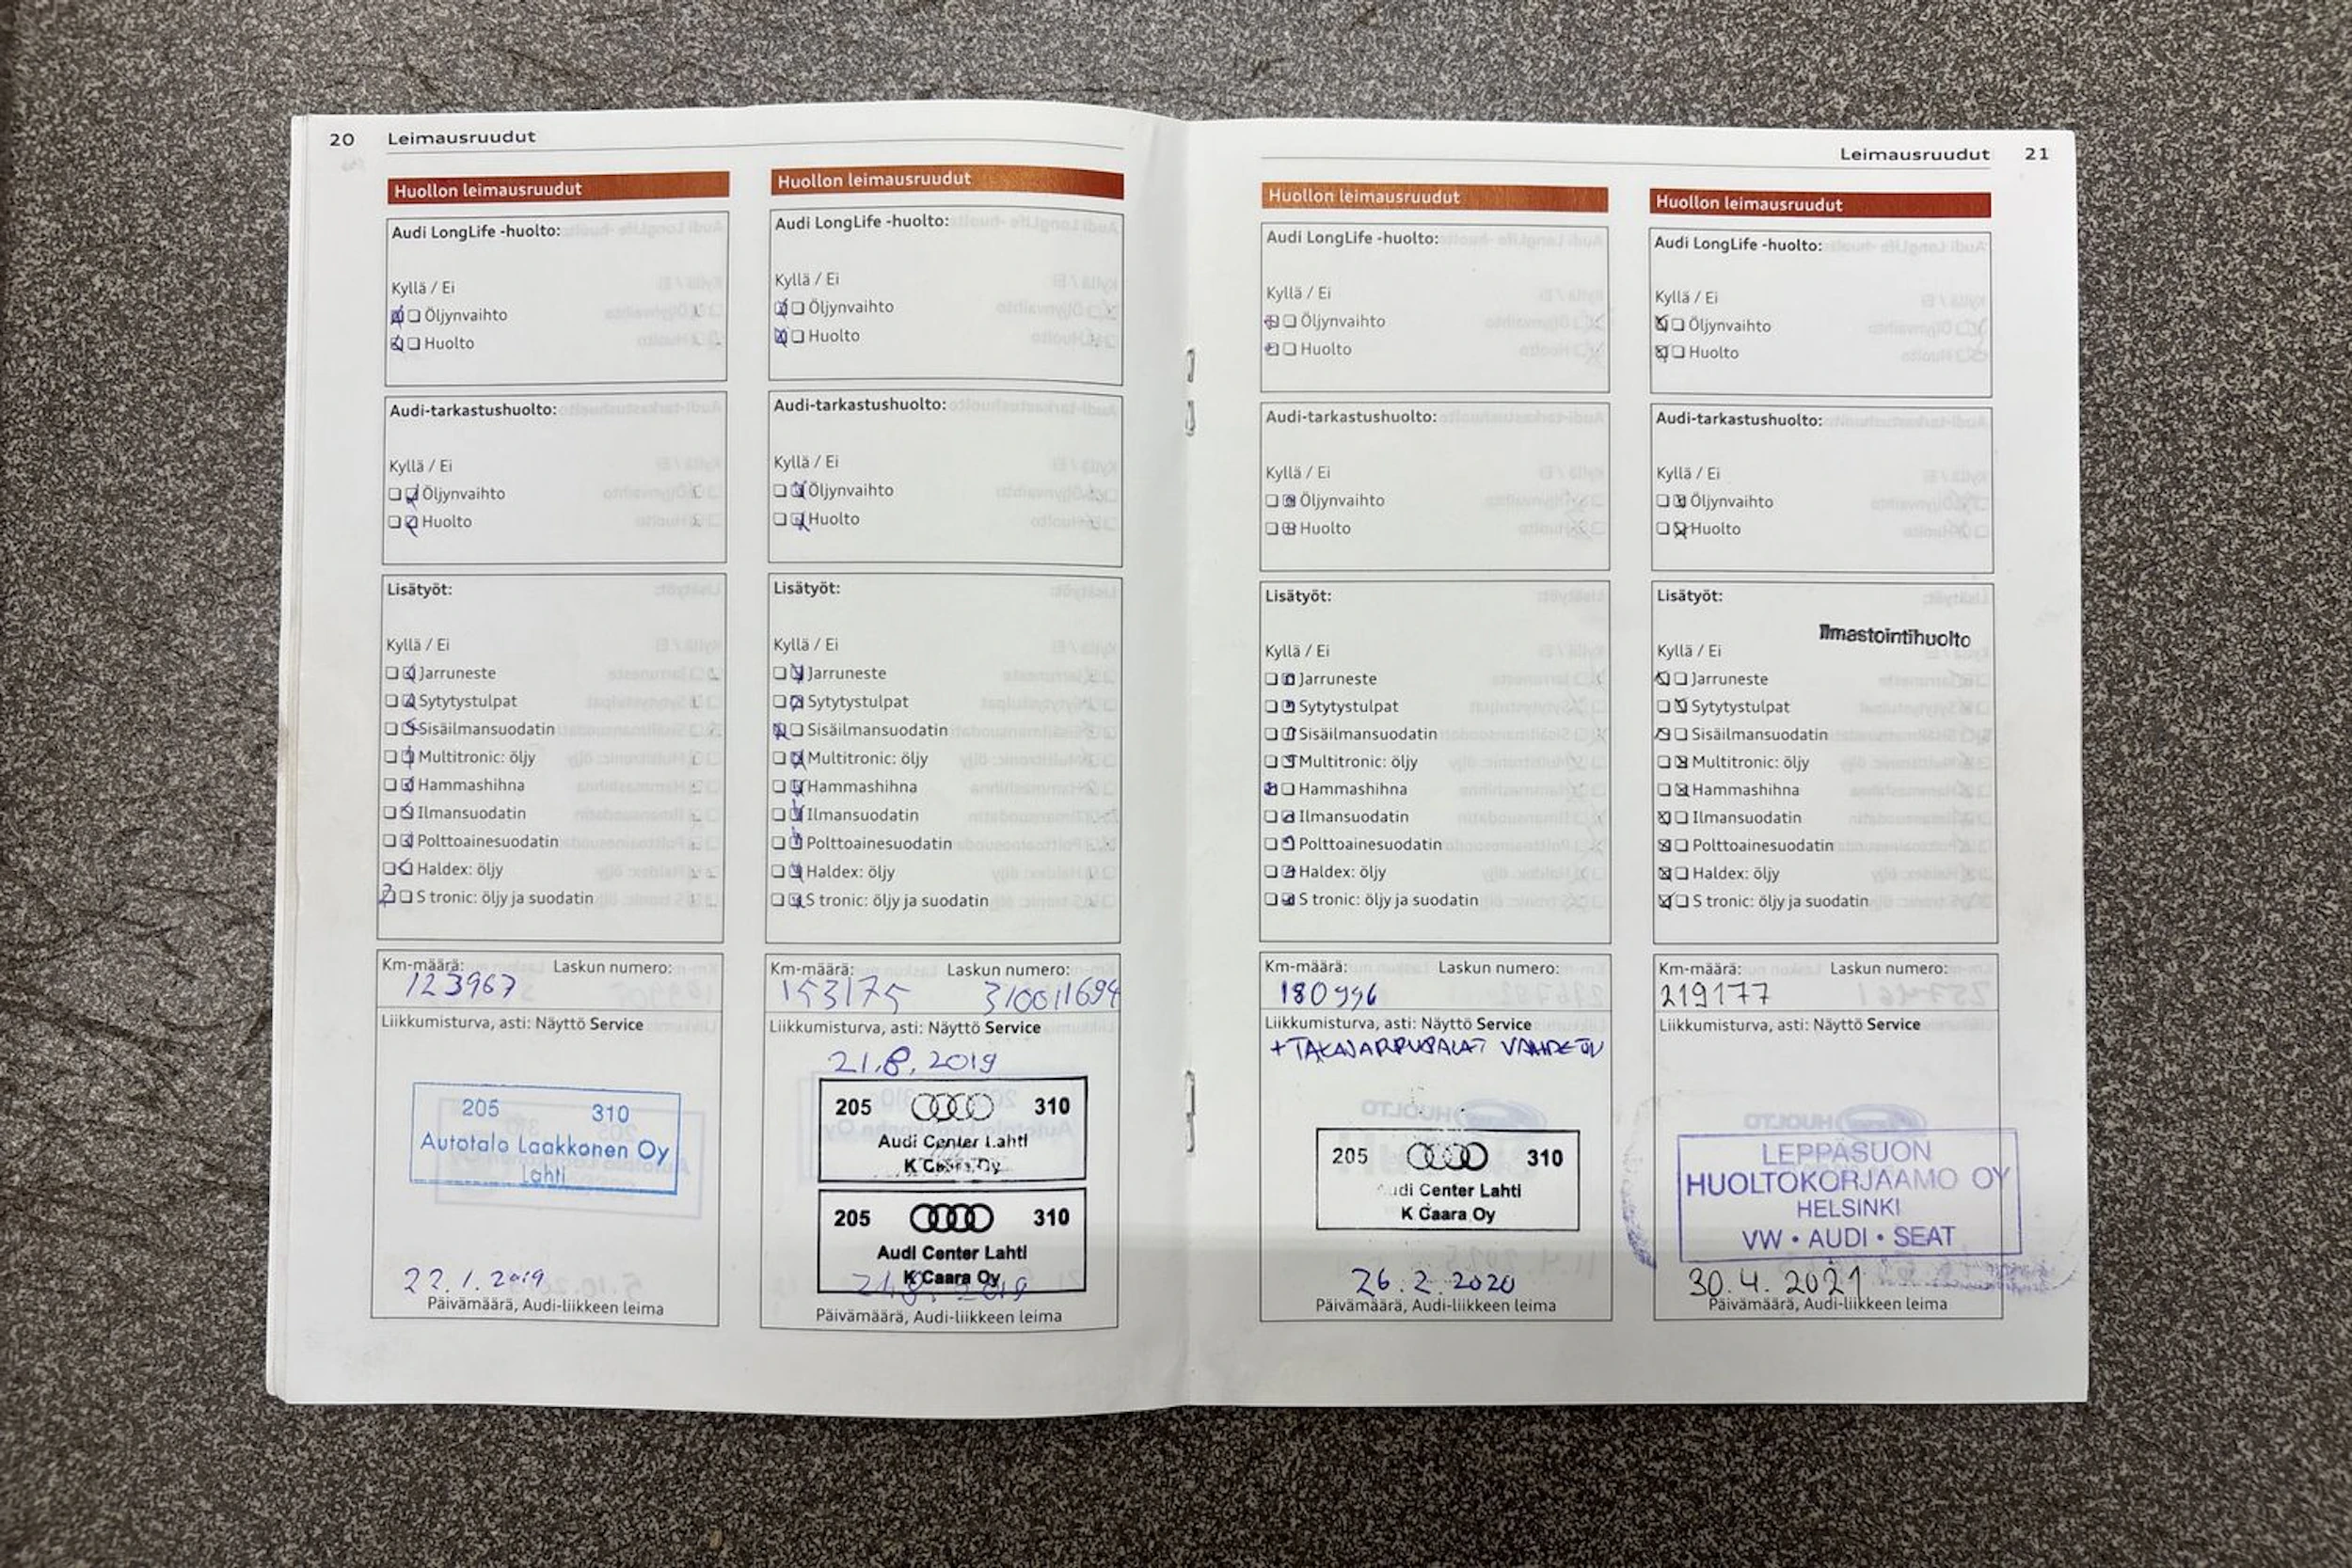 20 Leimausruudut
Huollon leimausruudut
Audi LongLife -huolto:
Kyllä / Ei
Öljynvaihto
Huolto
Audi-tarkastushuolto:
Kyllä / Ei
Öljynvaihto
Huolto
Lisätyöt:
Kyllä / Ei
Jarruneste
Sytytystulpat
Sisäilmansuodatin
Multitronic: öljy
Hammashihna
Ilmansuodatin
Polttoainesuodatin
Haldex: öljy
S tronic: öljy ja suodatin
Km-määrä: Laskun numero:
123967
Liikkumisturva, asti: Näyttö Service
205 310
Autotalo Laakkonen Oy
Lahti
22.1.2019
Päivämäärä, Audi-liikkeen leima
Huollon leimausruudut
Audi LongLife -huolto:
Kyllä / Ei
Öljynvaihto
Huolto
Audi-tarkastushuolto:
Kyllä / Ei
Öljynvaihto
Huolto
Lisätyöt:
Kyllä / Ei
Jarruneste
Sytytystulpat
Sisäilmansuodatin
Multitronic: öljy
Hammashihna
Ilmansuodatin
Polttoainesuodatin
Haldex: öljy
S tronic: öljy ja suodatin
Km-määrä: Laskun numero:
153175 310011694
Liikkumisturva, asti: Näyttö Service
21.8.2019
205 310
Audi Center Lahti
K Caara Oy
205 310
Audi Center Lahti
K Caara Oy
21.8.2019
Päivämäärä, Audi-liikkeen leima
Leimausruudut 21
Huollon leimausruudut
Audi LongLife -huolto:
Kyllä / Ei
Öljynvaihto
Huolto
Audi-tarkastushuolto:
Kyllä / Ei
Öljynvaihto
Huolto
Lisätyöt:
Kyllä / Ei
Jarruneste
Sytytystulpat
Sisäilmansuodatin
Multitronic: öljy
Hammashihna
Ilmansuodatin
Polttoainesuodatin
Haldex: öljy
S tronic: öljy ja suodatin
Km-määrä: Laskun numero:
Liikkumisturva, asti: Näyttö Service
+ TAKAJARRUPALAT
205 310
Audi Center Lahti
K Caara Oy
26.2.2020
Päivämäärä, Audi-liikkeen leima
Huollon leimausruudut
Audi LongLife -huolto:
Kyllä / Ei
Öljynvaihto
Huolto
Audi-tarkastushuolto:
Kyllä / Ei
Öljynvaihto
Huolto
Lisätyöt:
Ilmastointihuolto
Kyllä / Ei
Jarruneste
Sytytystulpat
Sisäilmansuodatin
Multitronic: öljy
Hammashihna
Ilmansuodatin
Polttoainesuodatin
Haldex: öljy
S tronic: öljy ja suodatin
Km-määrä: Laskun numero:
219177
Liikkumisturva, asti: Näyttö Service
LEPPÄSUON
HUOLTOKORJAAMO OY
HELSINKI
VW • AUDI • SEAT
30.4.2021
Päivämäärä, Audi-liikkeen leima